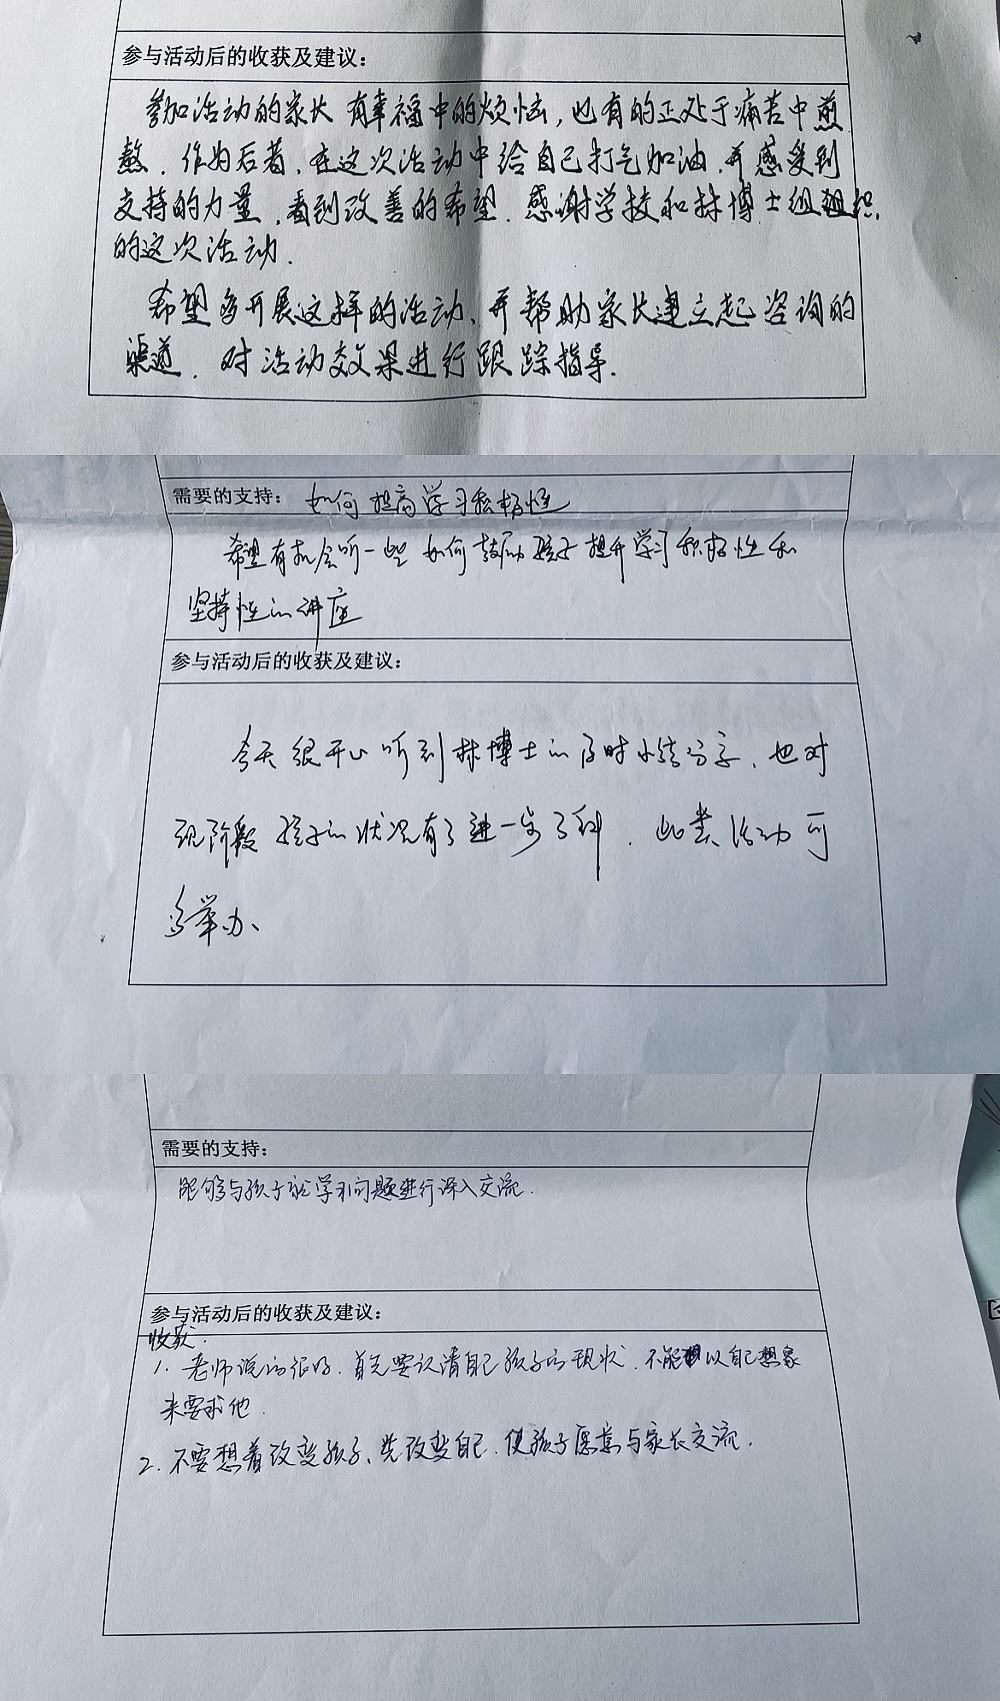 参与活动后的收获及建议：
参加活动的家长有幸福中的烦恼，也有的正处于痛苦中煎
熬．作为后者，在这次活动中给自己打气加油，并感受到
支持的力量，看到改善的希望．感谢学校和林博士组组织
的这次活动．
希望多开展这样的活动、并帮助家长建立起咨询的
渠道．对活动效果进行跟踪指导．
需要的支持：如何提高学习积极性
希望有机会听一些如何鼓励孩子提升学习积极性和
坚持性的讲座
参与活动后的收获及建议：
今天很开心听到林博士的及时分享、也对
现阶段孩子的状况有了进一步了解．此类活动可
多举办、
需要的支持：
能够与孩子就学习问题进行深入交流．
参与活动后的收获及建议：
收获：
1．老师说的很好．首先要认清自己孩子的现状．不能以自己想象
来要求他．
2．不要想着改变孩子、先改变自己．使孩子愿意与家长交流．